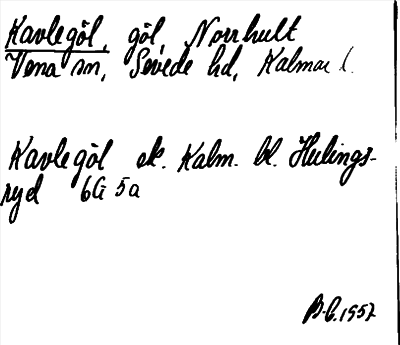 Kavlegöl, göl, Norrhult
Vena sn, Sevede hd, Kalmar l.
Kavlegöl ek. Kalm. bl. Hulings-
ryd 6G 5a
B.C. 1957